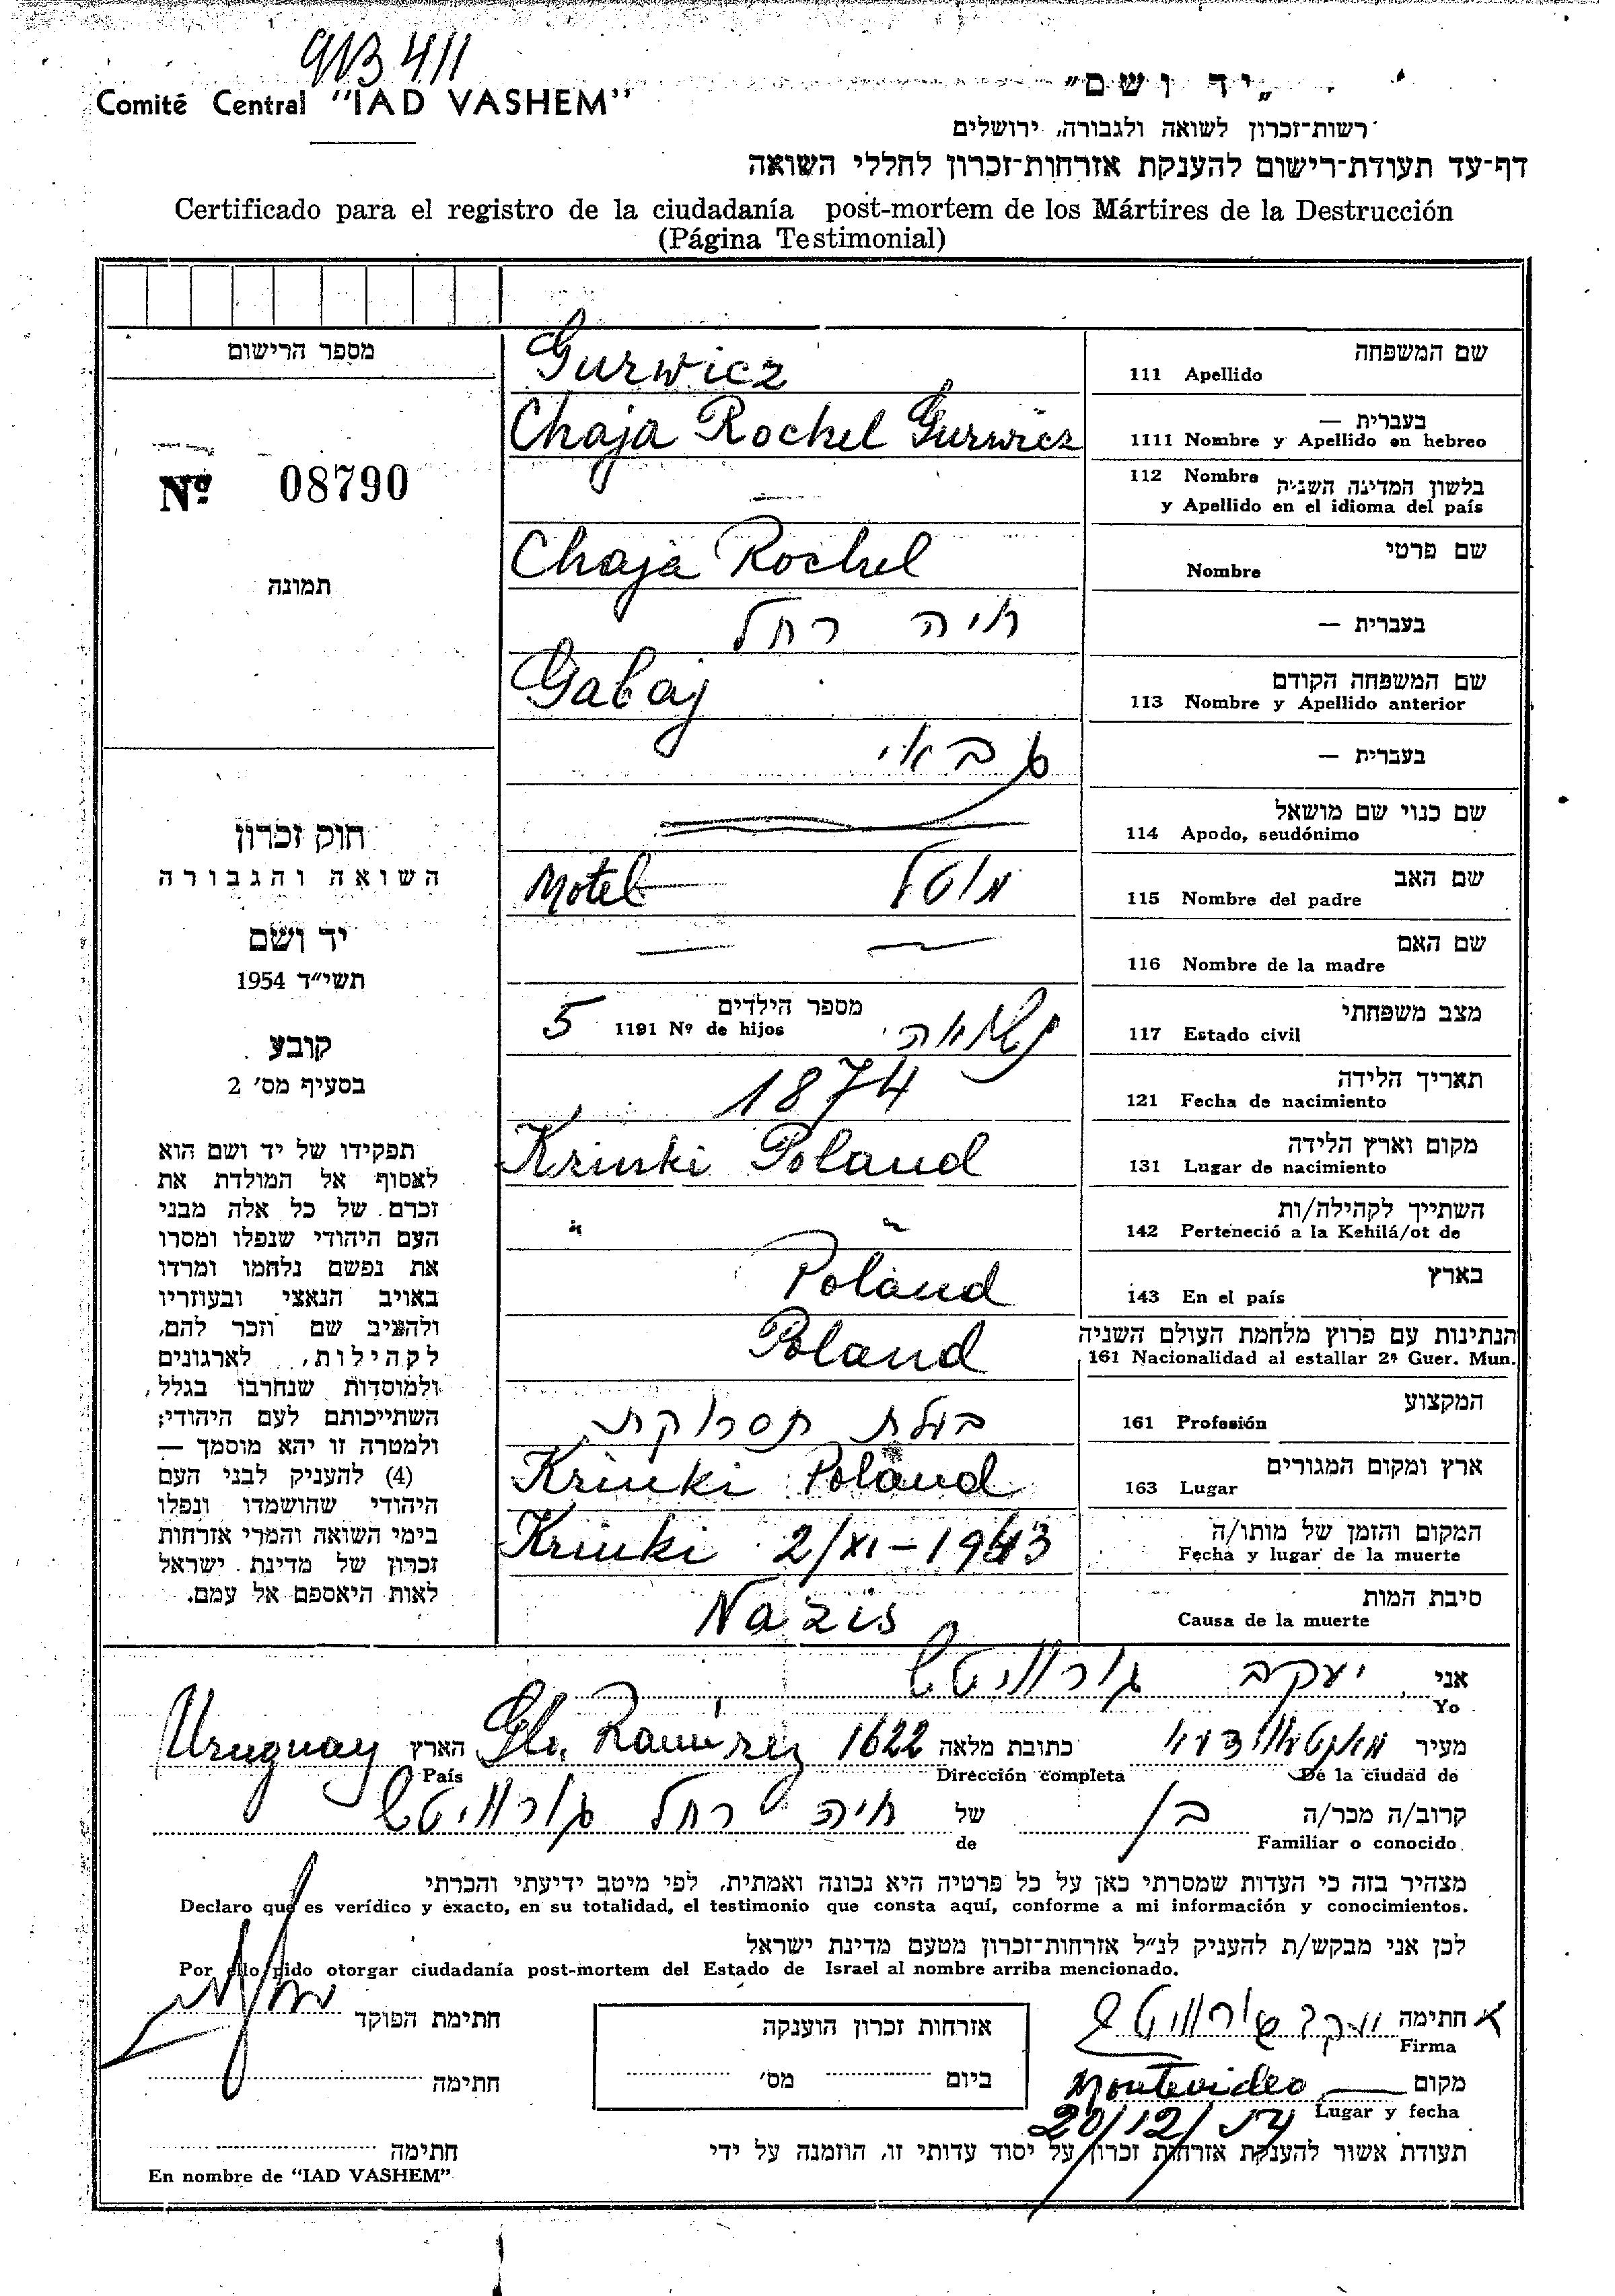 913411
Comité Central "IAD VASHEM"
„יד ושם"
רשות־זכרון לשואה ולגבורה, ירושלים
דף־עד תעודת־רישום להענקת אזרחות־זכרון לחללי השואה
Certificado para el registro de la ciudadanía post-mortem de los Mártires de la Destrucción
(Página Testimonial)
מספר הרישום
Nº 08790
תמונה
חוק זכרון
השואה והגבורה
יד ושם
תשי"ד 1954
קובע
בסעיף מס' 2
תפקידו של יד ושם הוא
לאסוף אל המולדת את
זכרם של כל אלה מבני
העם היהודי שנפלו ומסרו
את נפשם נלחמו ומרדו
באויב הנאצי ובעוזריו
ולהציב שם וזכר להם,
לקהילות, לארגונים
ולמוסדות שנחרבו בגלל
השתייכותם לעם היהודי;
ולמטרה זו יהא מוסמך —
(4) להעניק לבני העם
היהודי שהושמדו ונפלו
בימי השואה והמרי אזרחות
זכרון של מדינת ישראל
לאות היאספם אל עמם.
שם המשפחה
111 Apellido Gurwicz
בעברית —
1111 Nombre y Apellido en hebreo Chaja Rochel Gurwicz
112 Nombre בלשון המדינה השניה
y Apellido en el idioma del país —
שם פרטי
Nombre Chaja Rochel
בעברית — חיה רחל
שם המשפחה הקודם
113 Nombre y Apellido anterior Gabaj
בעברית — גבאי
שם כנוי שם מושאל
114 Apodo, seudónimo
שם האב
115 Nombre del padre Motel מוטל
שם האם
116 Nombre de la madre — —
מצב משפחתי
117 Estado civil נשואה
מספר הילדים
1191 Nº de hijos 5
תאריך הלידה
121 Fecha de nacimiento 1874
מקום וארץ הלידה
131 Lugar de nacimiento Krinki Poland
השתייך לקהילה/ות
142 Perteneció a la Kehilá/ot de " "
בארץ
143 En el país Poland
הנתינות עם פרוץ מלחמת העולם השניה
161 Nacionalidad al estallar 2ª Guer. Mun. Poland
המקצוע
161 Profesión בעלת תסרוקת
ארץ ומקום המגורים
163 Lugar Krinki Poland
המקום והזמן של מותו/ה
Fecha y lugar de la muerte Krinki 2/XI-1943
סיבת המות
Causa de la muerte Nazis
אני יעקב גורוויטש
Yo
מעיר מונטווידעו כתובת מלאה Gla. Ramirez 1622 הארץ Uruguay
De la ciudad de Dirección completa País
קרוב/ה מכר/ה בן של חיה רחל גורוויטש
Familiar o conocido de
מצהיר בזה כי העדות שמסרתי כאן על כל פרטיה היא נכונה ואמתית, לפי מיטב ידיעתי והכרתי
Declaro que es verídico y exacto, en su totalidad, el testimonio que consta aquí, conforme a mi información y conocimientos.
לכן אני מבקש/ת להעניק לנ"ל אזרחות־זכרון מטעם מדינת ישראל
Por ello pido otorgar ciudadanía post-mortem del Estado de Israel al nombre arriba mencionado.
חתימה יעקב גורוויטש
Firma
מקום Montevideo
Lugar y fecha 20/12/54
אזרחות זכרון הוענקה
ביום מס'
חתימת הפוקד
חתימה
תעודת אשור להענקת אזרחות זכרון על יסוד עדותי זו, הוזמנה על ידי
חתימה
En nombre de "IAD VASHEM"